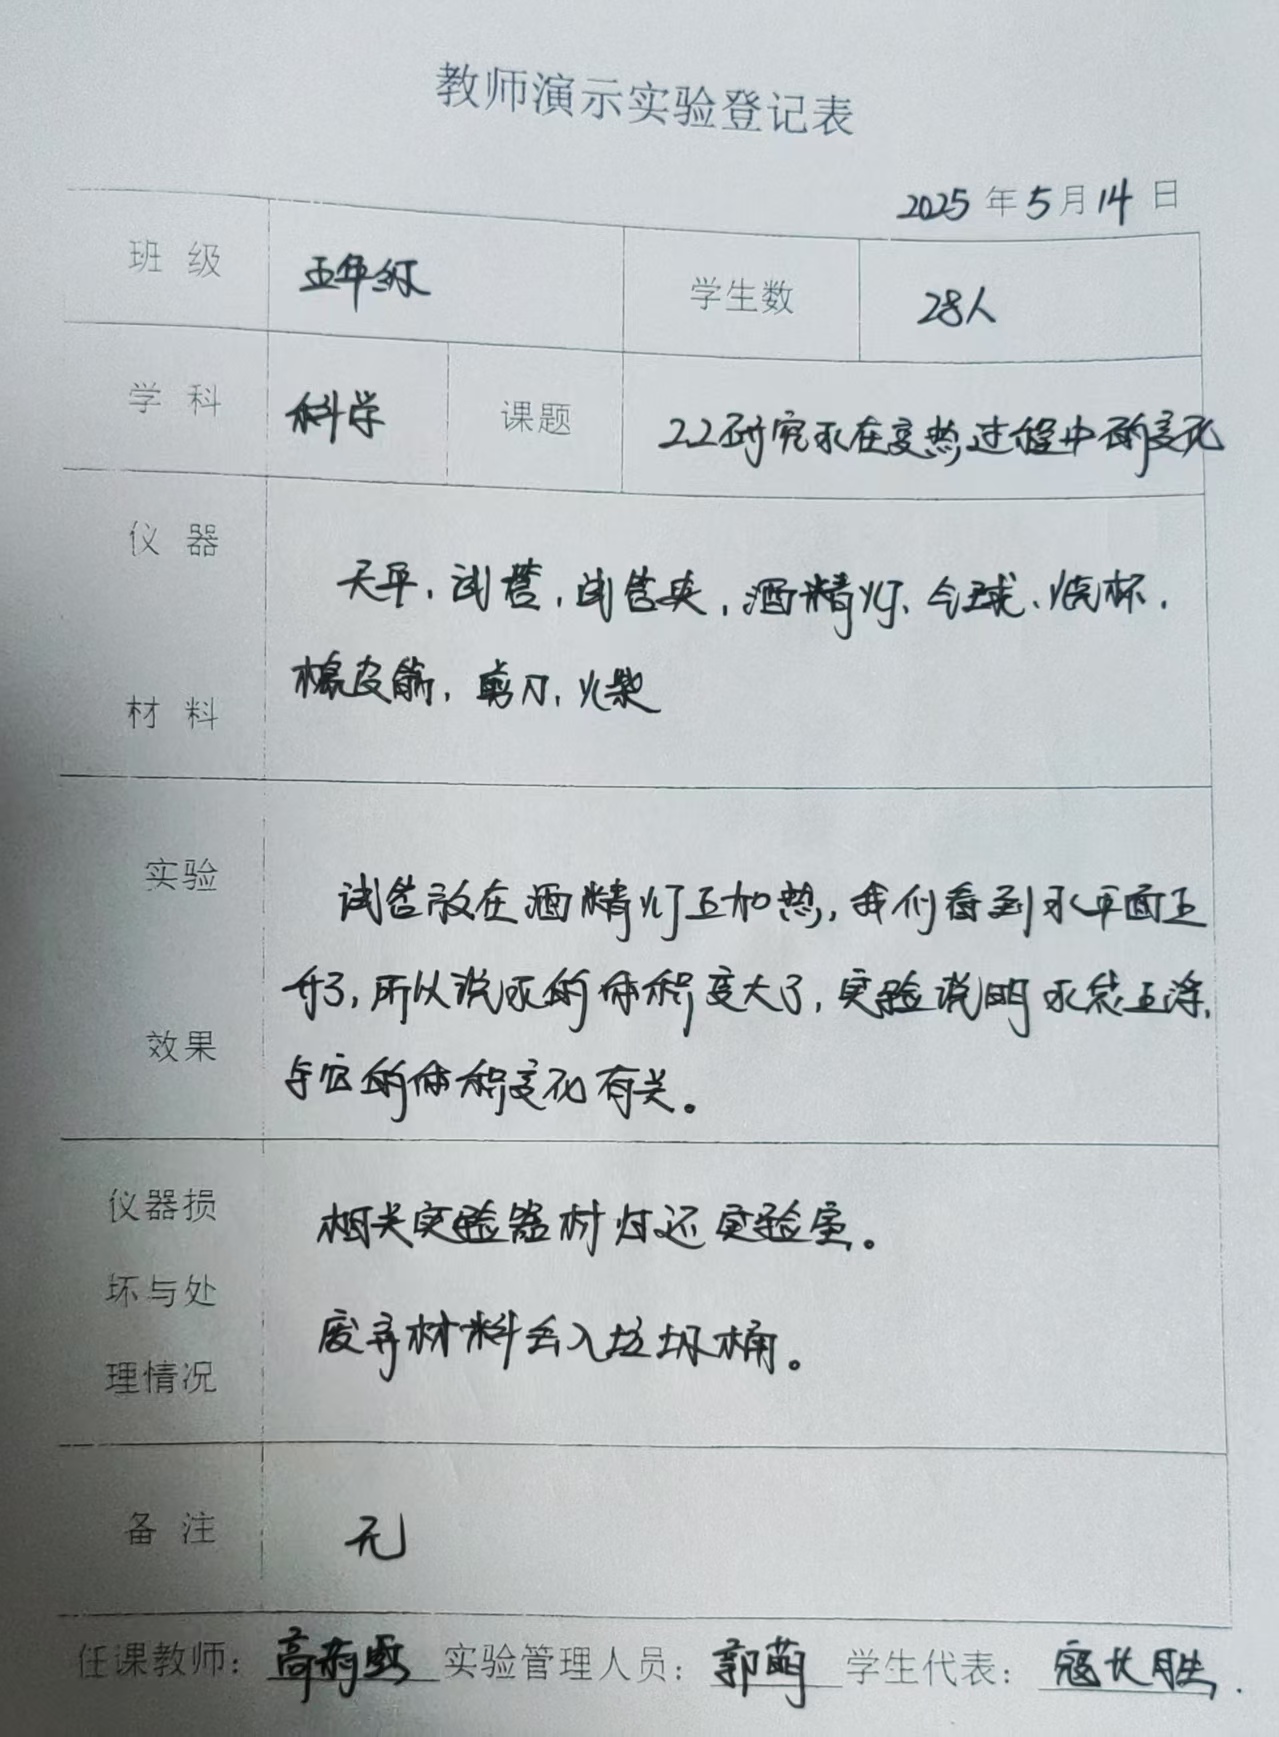 教师演示实验登记表
2025年5月14日
班级 五年级 学生数 28人
学科 科学 课题 2.2研究水在变热过程中的变化
仪器
天平、试管、试管夹、酒精灯、气球、烧杯、
橡皮筋、剪刀、火柴
材料
实验
试管放在酒精灯上加热,我们看到水平面上
升了,所以说水的体积变大了,实验说明水总上浮,
效果
与它的体积变化有关。
仪器损
相关实验器材归还实验室。
坏与处
废弃材料丢入垃圾桶。
理情况
备注 无
任课教师: 高 实验管理人员: 郭萌 学生代表: 寇长胜.